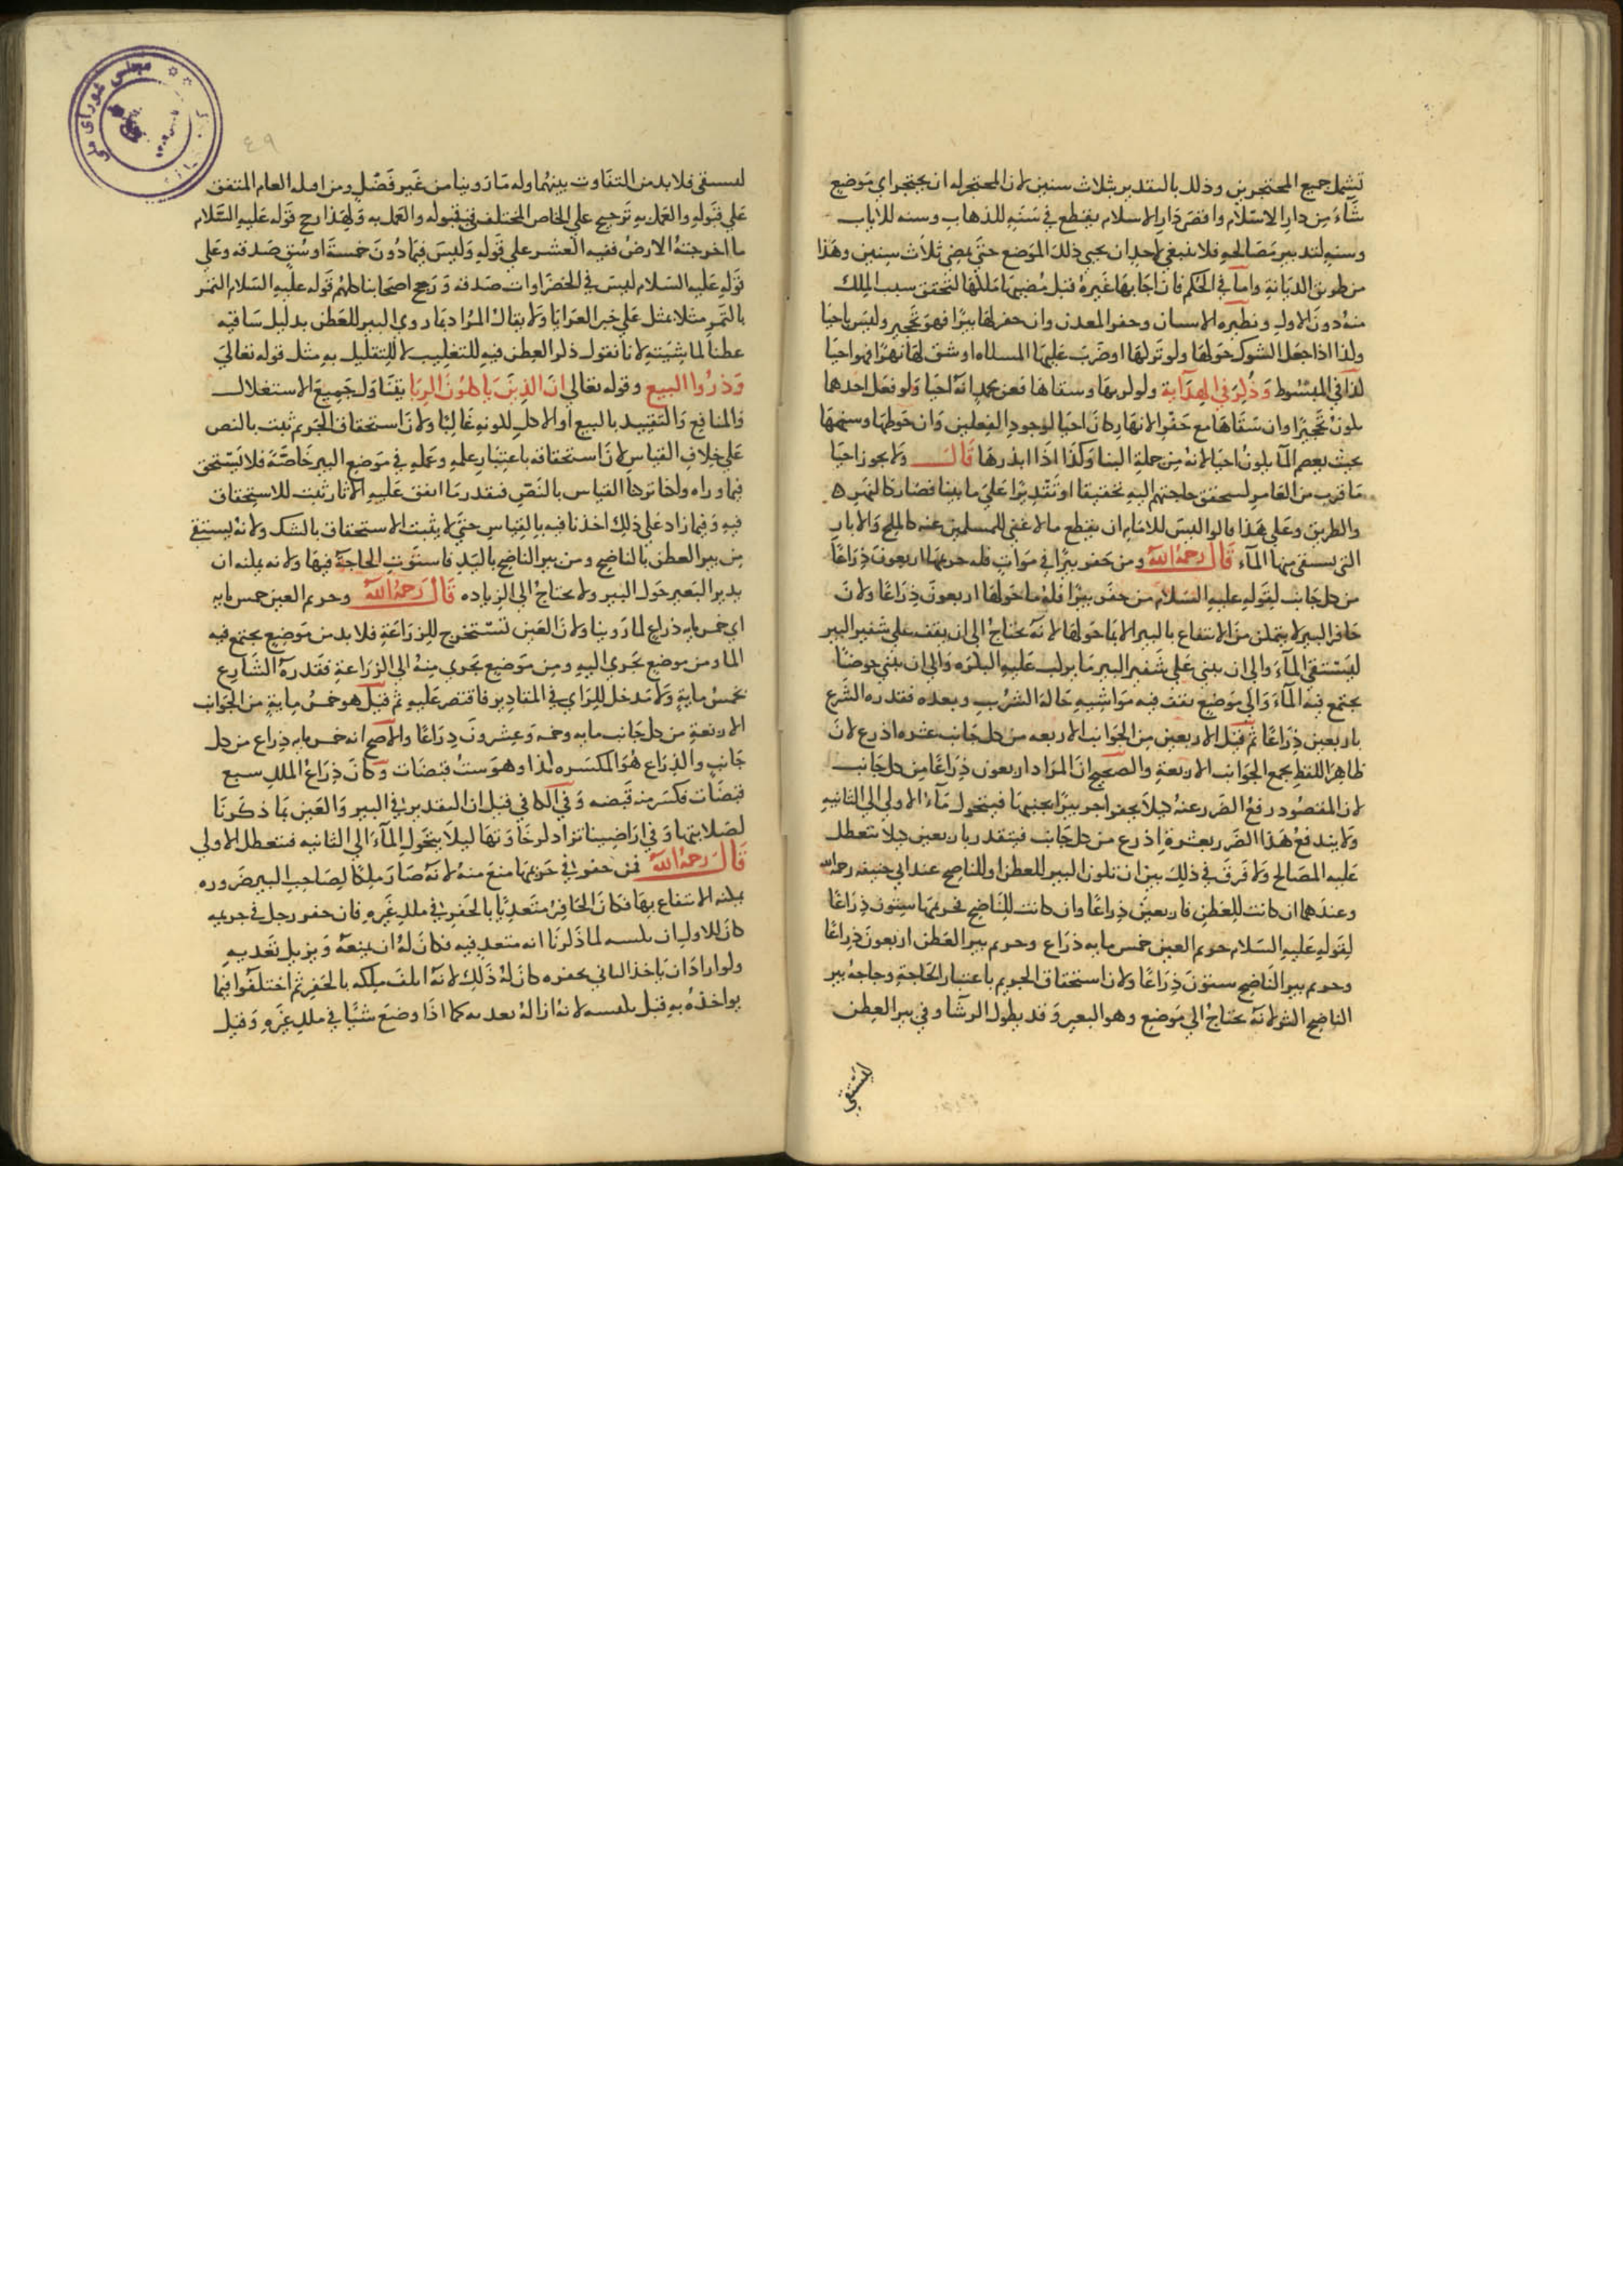 تشمل جميع المحتجرين وذلك بالتقدير بثلاث سنين لان المحتجر له ان يحتجر اي موضع
شاء من دار الاسلام واقصى دار الاسلام يقطع في سنه للذهاب وسنه للاياب
وسنه لتدبير مصالحه فلا ينبغي لاحد ان يحيي ذلك الموضع حتى يمضي ثلاث سنين وهذا
من طريق الديانة واما في الحكم فان احياها غيره قبل مضيها ملكها لتحقق سبب الملك
منه دون الاول ونظيره الاستيام وحفر المعدن وان حفر لها بيرا فهو تحجير وليس باحيا
ولذا اذا جعل الشوك حولها ولو كربها او ضرب عليها المسناه او شق لها نهرا فهو احيا
لذا في المبسوط وذكر في الهداية ولو كربها وسقاها فعن محمد انه احيا ولو فعل احدهما
يكون تحجيرا وان سقاها مع حفر الانهار كان احيا لوجود الفعلين وان حوطها وسنمها
بحيث يعصم المآ يكون احيا لانه من جملة البنا وكذا اذا ابذرها قال ولا يجوز احيا
ما قرب من العامر لتحقق حاجتهم اليه تحقيقا او تقديرا على ما بينا فصار كالنهر
والطريق وعلى هذا قالوا ليس للامام ان يقطع ما لا غنى للمسلمين عنه كالملح والابار
التي يستقى منها المآء قال رحمه الله ومن حفر بيرا في موات فله حريمها اربعون ذراعا
من كل جانب لقوله عليه السلام من حفر بيرا فله ما حولها اربعون ذراعا ولان
حافر البير لا يتمكن من الانتفاع بالبير الا بما حولها لانه يحتاج الى ان يقف على شفير البير
ليستقي المآء والى ان يبني على شفير البير ما يركب عليه البكره والى ان يبني حوضا
يجتمع فيه المآء والى موضع يقف فيه مواشيه حالة الشرب وبعده فقدره الشرع
باربعين ذراعا ثم قيل الاربعين من الجوانب الاربعه من كل جانب عشره اذرع لان
ظاهر اللفظ يجمع الجوانب الاربعة والصحيح ان المراد اربعون ذراعا من كل جانب
لان المقصود رفع الضرر عنه كيلا يحفر اخر بيرا بجنبها فيتحول مآء الاولى الى الثانيه
ولا يندفع هذا الضرر بعشرة اذرع من كل جانب فيتقدر باربعين كيلا تتعطل
عليه المصالح ولا فرق في ذلك بين ان تكون البير للعطن او للناضح عند ابي حنيفه رحمه الله
وعندهما ان كانت للعطن فاربعين ذراعا وان كانت للناضح فحريمها ستون ذراعا
لقوله عليه السلام حريم العين خمس مايه ذراع وحريم بير العطن اربعون ذراعا
وحريم بير الناضح ستون ذراعا ولان استحقاق الحريم باعتبار الحاجة وحاجة بير
الناضح اكثر لانه يحتاج الى موضع وهو البعير وقد يطول الرشا وفي بير العطن
ليستقي
٤٩
مجلس شوراى ملى
ليستقى فلا بد من التفاوت بينهما وله ما روينا من غير فصل ومن اصله العام المتفق
على قبوله والعمل به ترجيح على الخاص المختلف في قبوله والعمل به ولهذا رجح قوله عليه السلام
ما اخرجته الارض ففيه العشر على قوله وليس فيما دون خمسة اوسق صدقه وعلى
قوله عليه السلام ليس في الخضراوات صدقه ورجح اصحابنا كلهم قوله عليه السلام التمر
بالتمر مثلا بمثل على خبر العرايا ولا يقال المراد بما روي البير للعطن بدليل سياقه
عطنا لماشيته لانا نقول ذكر العطن فيه للتغليب لا للتقليل به مثل قوله تعالى
وذروا البيع وقوله تعالى ان الذين ياكلون الربا يتناول جميع الاستغلال
والمنافع والتقييد بالبيع او الاكل لكونه غالبا ولان استحقاق الحريم ثبت بالنص
على خلاف القياس لان استحقاقه باعتبار علمه وعمله في موضع البير خاصة فلا يستحق
فيما وراه ولكنا تركنا القياس بالنص فبقدر ما اتفق عليه الاثار ثبت للاستحقاق
فيه وفيما زاد على ذلك اخذنا فيه بالقياس حتى لا يثبت الاستحقاق بالشك ولانه ليستقي
من بير العطن بالناضح ومن بير الناضح باليد فاستوت الحاجة فيها ولانه يمكنه ان
يدير البعير حول البير ولا يحتاج الى الزياده قال رحمه الله وحريم العين خمس مايه
اي خمس مايه ذراع لما روينا ولان العين تستخرج للزراعة فلا بد من موضع يجتمع فيه
الما ومن موضع يجري اليه ومن موضع يجري منه الى الزراعة فقدره الشارع
بخمس ماية ولا مدخل للراي في المقادير فاقتصر عليه ثم قيل هو خمس ماية من الجوانب
الاربعة من كل جانب مايه وخمسه وعشرون ذراعا والاصح انه خمس مايه ذراع من كل
جانب والذراع هو المكسره لذا وهو ست قبضات وكان ذراع الملك سبع
قبضات فكسر منه قبضه وفي الكافي قيل ان التقدير في البير والعين بما ذكرنا
لصلابتها وفي اراضينا تزاد لرخاوتها ليلا يتحول المآء الى الثانيه فتتعطل الاولى
قال رحمه الله فمن حفر في حريمها منع منه لانه صار ملكا لصاحب البير ضروره
يمكنه الانتفاع بها فكان الحافر متعديا بالحفر في ملك غيره فان حفر رجل في حريمه
كان للاول ان يكبسه لما ذكرنا انه متعد فيه فكان له ان يمنعه ويزيل تعديه
ولو اراد ان ياخذ الثاني بحفره كان له ذلك لانه اتلف ملكه بالحفر ثم اختلفوا فيما
يواخذه به قيل يكبسه لانه ازاله بعديه كما اذا وضع شيا في ملك غيره وقيل